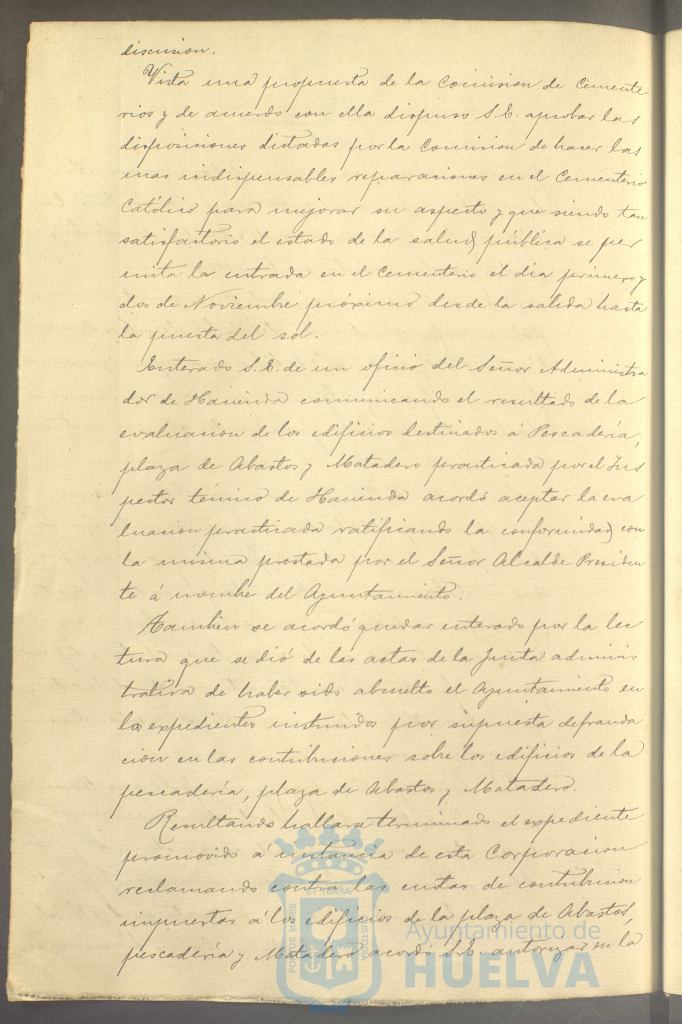 discusion.
Vista una propuesta de la Comision de Cemente
rios y de acuerdo con ella dispuso S.E. aprobar las
disposiciones dictadas por la Comision de hacer las
mas indispensables reparaciones en el Cementerio
Católico para mejorar su aspecto y que siendo tan
satisfactorio el estado de la salud pública se per
mita la entrada en el Cementerio el dia primero y
dos de Noviembre próximo desde la salida hasta
la puesta del sol.
Enterado S.E. de un oficio del Señor Administra
dor de Hacienda comunicando el resultado de la
evaluacion de los edificios destinados á Pescadería,
plaza de Abastos y Matadero practicada por el Ins
pector técnico de Hacienda acordó aceptar la eva
luacion practicada ratificando la conformidad con
la misma prestada por el Señor Alcalde Presiden
te á nombre del Ayuntamiento.
Tambien se acordó quedar enterado por la lec
tura que se dió de las actas de la Junta adminis
trativa de haber sido absuelto el Ayuntamiento en
los expedientes instruidos por supuesta defrauda
cion en las contribuciones sobre los edificios de la
pescadería, plaza de Abastos y Matadero.
Resultando hallarse terminado el expediente
promovido á instancia de esta Corporacion
reclamando contra las cuotas de contribucion
impuestas á los edificios de la plaza de Abastos,
pescadería y Matadero acordó S.E. autorizar en la
PORTUS MARIS ET TERRAE CUSTODIA
Ayuntamiento de
HUELVA